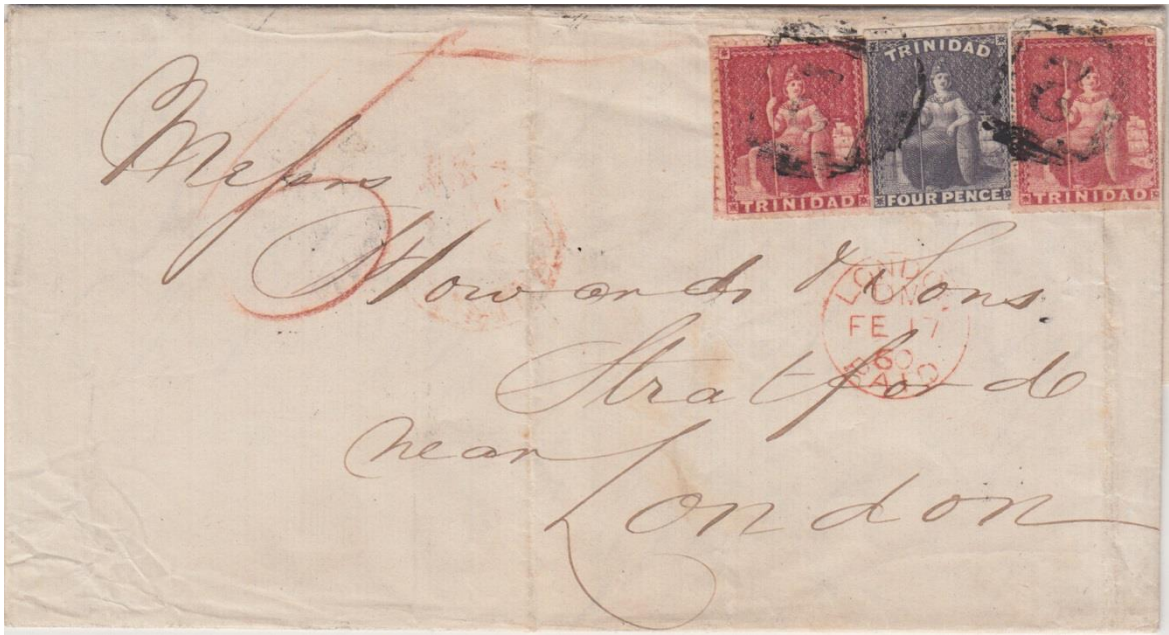 TRINIDAD
TRINIDAD
FOUR PENCE
TRINIDAD
Messrs
Howards & Sons
Stratford
near
London
LONDON
FE 17
60
PAID